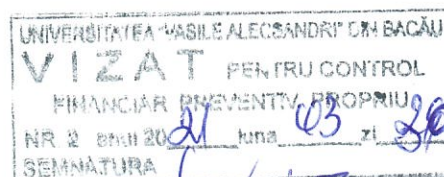 UNIVERSITATEA "VASILE ALECSANDRI" DIN BACĂU
VIZAT PENTRU CONTROL
FINANCIAR PREVENTIV PROPRIU
NR. 2 anul 2021 luna 03 zi
SEMNĂTURA